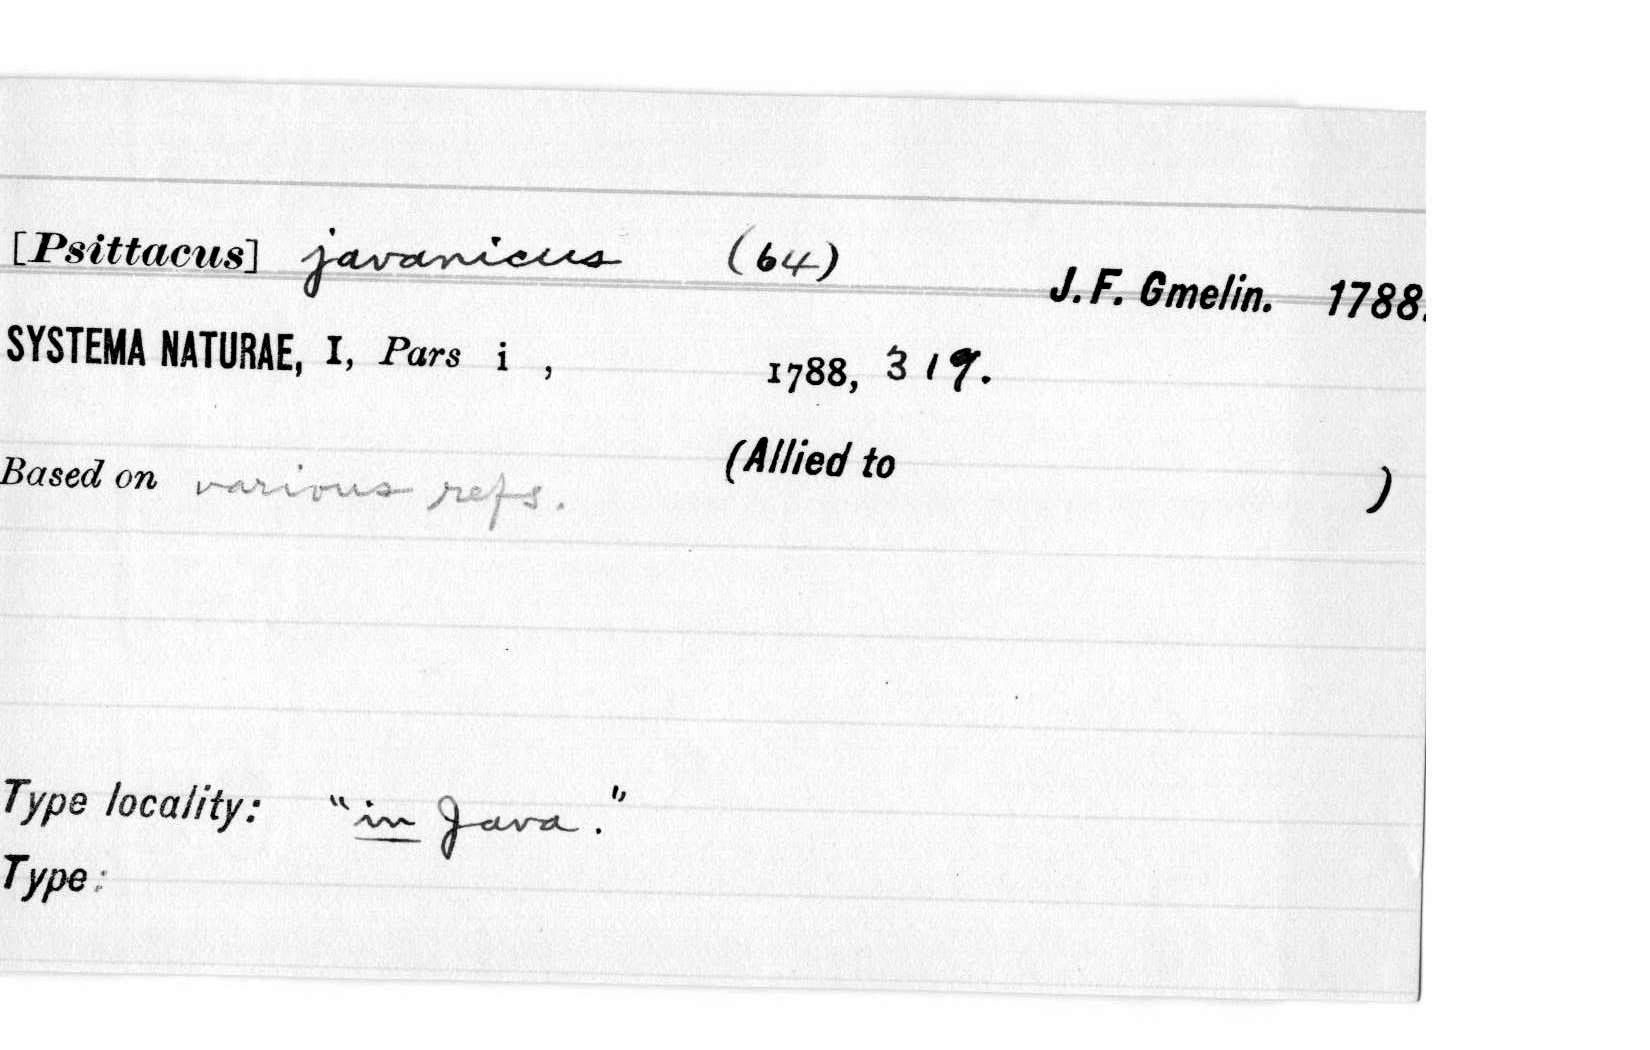 [Psittacus] javanicus (64) J. F. Gmelin. 1788.
SYSTEMA NATURAE, I, Pars i , 1788, 319.
Based on various refs. (Allied to )
Type locality: "in Java."
Type: